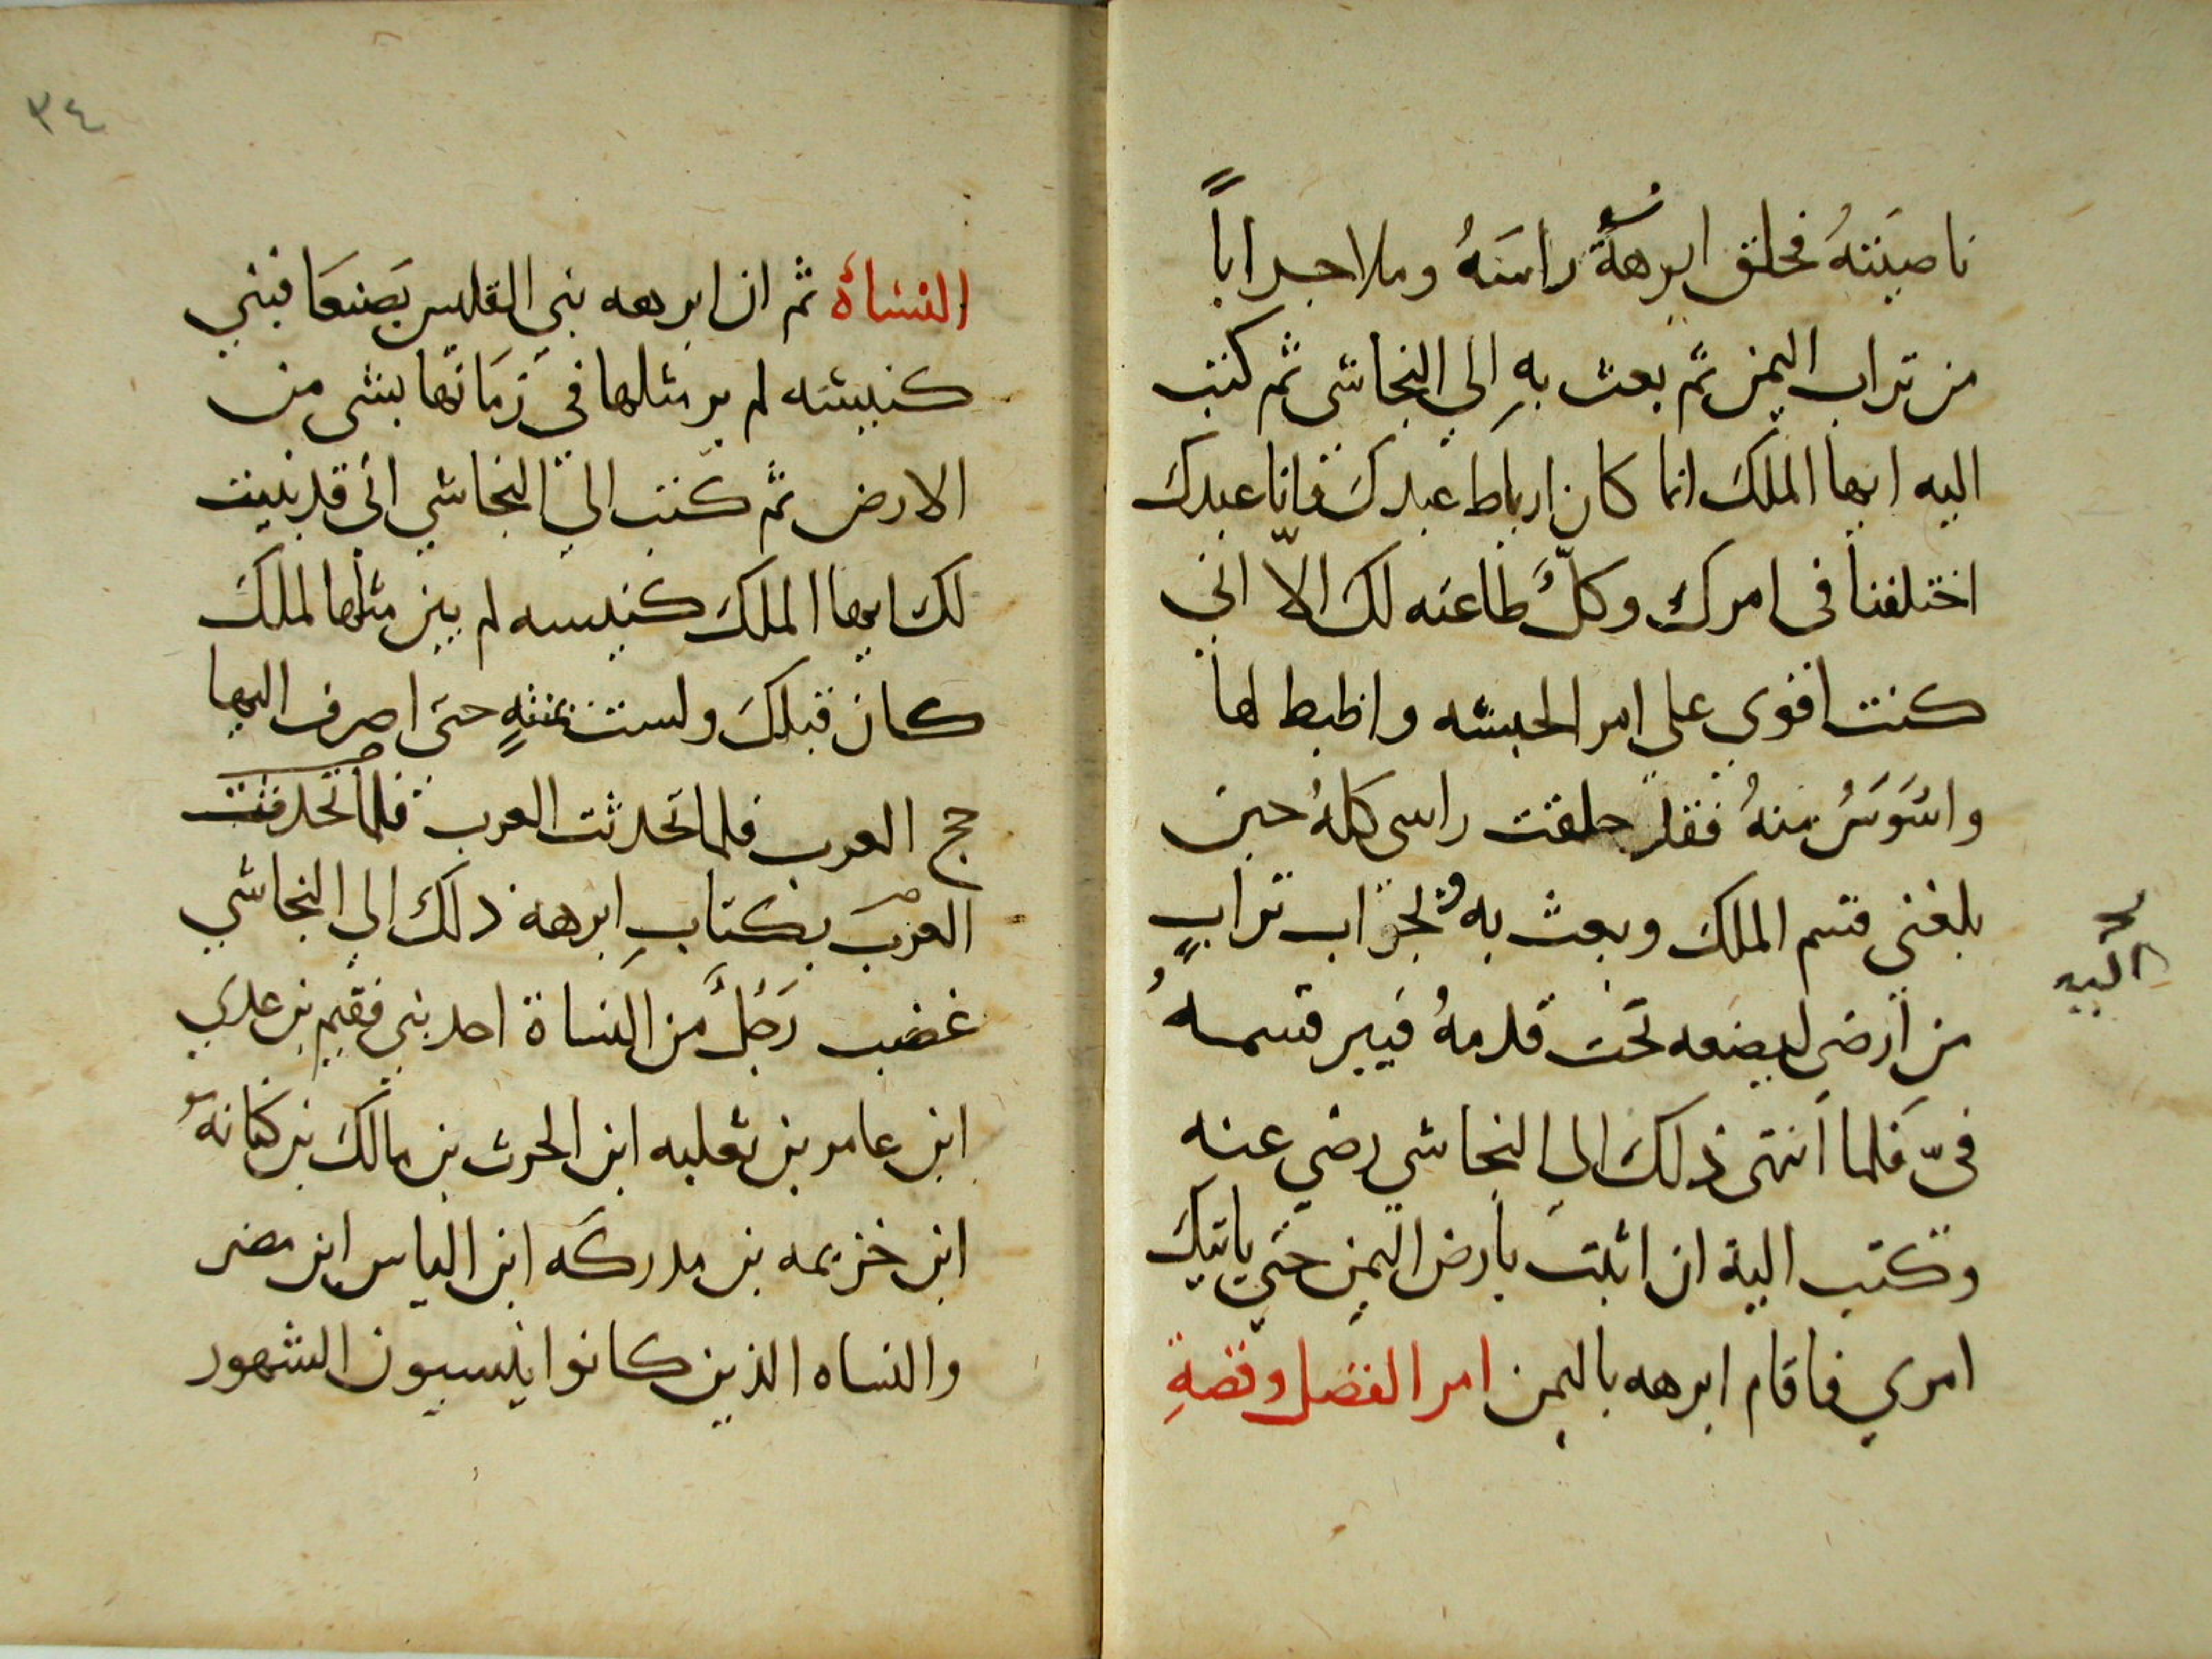 ناصيتهُ فحلق ابرهةُ راسَهُ وملا جراباً
من تراب اليمن ثم بعث بهِ الي النجاشي ثم كتب
اليه ايها الملكَ انما كان ارياط عبدكَ فانا عبدكَ
اختلفنا في امرك وكلٌّ طاعته لك الاّ اني
كنت اقوي علي امر الحبشه واظبط لها
واسْوَسُ منهُ فقد حلقت راسي كلهُ حين
بلغني قسم الملك وبعث به وبجراب ترابٍ
اليه
من ارضي ليضعه تحت قدمهُ فيبر قسمه
فيّ فلما انتهى ذلك الي النجاشي رضي عنه
وكتب الية ان اثبت بارض اليمن حتي ياتيكَ
امري فاقام ابرهه باليمن امر الفضل وقصةِ
٣٤
النساة ثم ان ابرهه بني القليس بصَنعَا فبني
كنيسه لم ير مثلها في زمَانها بشي من
الارض ثم كتب الي النجاشي اني قد بنيت
لك ايها الملكَ كنيسه لم يبن مثلها لملكَ
كان قبلكَ ولست بمنتهٍ حتى اصرف اليها
حج العرب فلما تحدثت العرب فلما تحدثت
العرب بكتابِ ابرهه ذلك الي النجاشي
غضب رَجُلٌ من النساة احد بني فقيم بن عدي
ابن عامر بن ثعلبه ابن الحرث بن مالكَ بن كنانه
ابن خزيمه بن مدركَه ابن الياس ابن مضر
والنساه الذين كانوا ينسيون الشهور